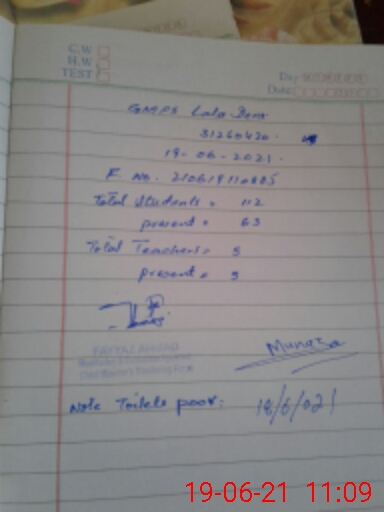 C.W
H.W
TEST
Day
Date
GMPS Lala Dera
31260420.
19-06-2021.
R No. 210619110805
Total Students = 112
present = 63
Total Teachers = 3
present = 3
FAYYAZ AHMAD
Munaza
Note Toilets poor:
18/6/021
19-06-21 11:09